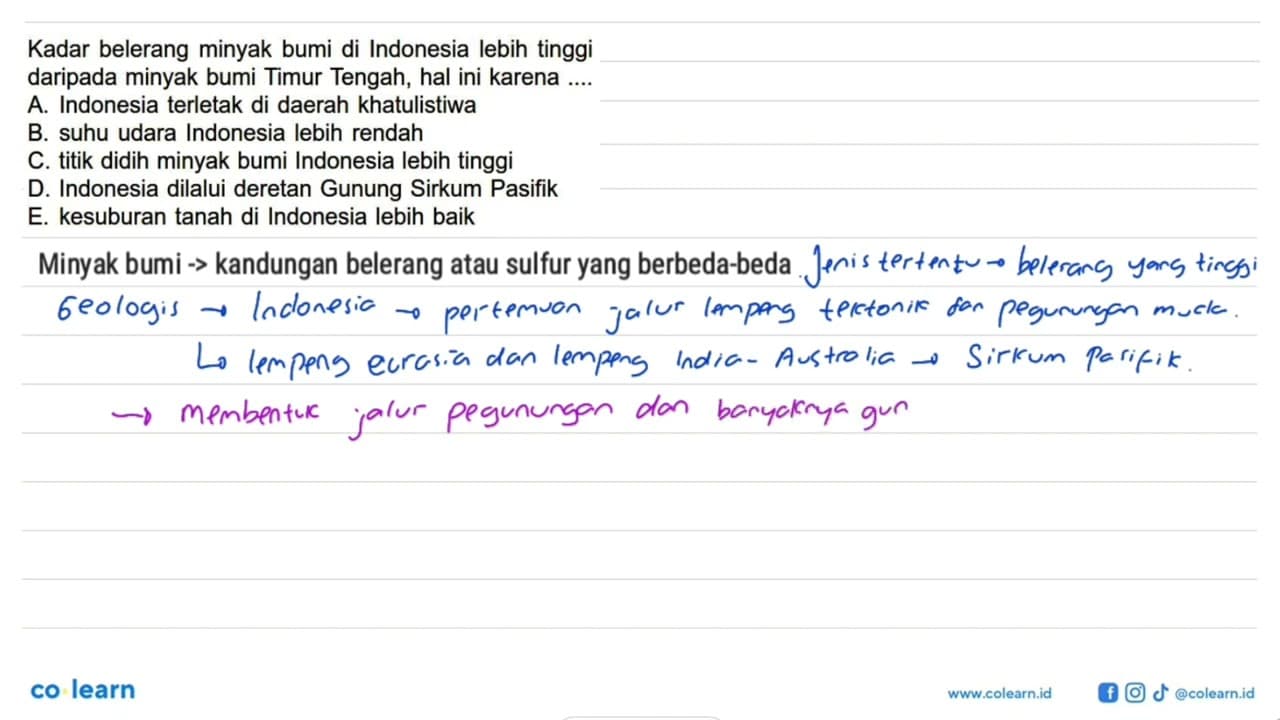 Kadar belerang minyak bumi di Indonesia lebih tinggi
daripada minyak bumi Timur Tengah, hal ini karena ....
A. Indonesia terletak di daerah khatulistiwa
B. suhu udara Indonesia lebih rendah
C. titik didih minyak bumi Indonesia lebih tinggi
D. Indonesia dilalui deretan Gunung Sirkum Pasifik
E. kesuburan tanah di Indonesia lebih baik
Minyak bumi -> kandungan belerang atau sulfur yang berbeda-beda. Jenis tertentu → belerang yang tinggi
Geologis → Indonesia → pertemuan jalur lempeng tektonik dan pegunungan muda.
↳ lempeng eurasia dan lempeng India - Australia → Sirkum Pasifik.
→ membentuk jalur pegunungan dan banyaknya gun
co learn
www.colearn.id
@colearn.id